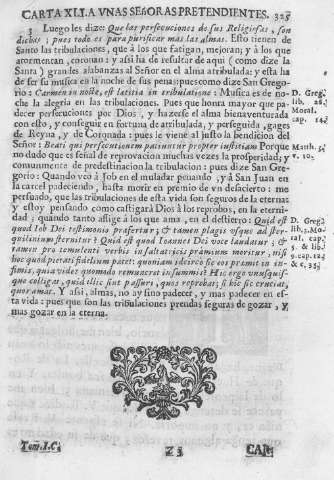 CARTA XLI. A VNAS SEñORAS PRETENDIENTES. 325
3 Luego les dize: Que las persecuciones de sus Religiosas, son
dichas; pues todo es para purificar mas las almas. Esto tienen de
Santo las tribulaciones, que à los que fatigan, mejoran; y à los que
atormentan, coronan: y assi ha de resultar de aqui (como dize la
Santa) grandes alabanzas al Señor en el alma atribulada: y esta ha
de ser su musica en la noche de sus penas: pues como dize San Grego-
rio: Carmen in nocte, est lætitia in tribulatione: Musica es de no-
che la alegria en las tribulaciones. Pues que honra mayor que pa-
decer persecuciones por Dios, y hazese el alma bienaventurada
con esto, y conseguir en fortuna de atribulada, y perseguida, gages
de Reyna, y de Coronada: pues le viene al justo la bendicion del
Señor: Beati qui persecutionem patiuntur propter iustitiam Porque
no dudo que es señal de reprovacion muchas vezes la prosperidad; y
comunmente de predestinacion la tribulacion: pues dize San Gre-
gorio: Quando veo à Job en el muladar penando, y à San Juan en
la carcel padeciendo, hasta morir en premio de vn desacierto: me
persuado, que las tribulaciones de esta vida son seguros de la eterna:
y estoy pensando como castigarà Dios à los reprobos, en la eterni-
dad; quando tanto aflige à los que ama, en el destierro: Quid est
quod Iob Dei testimonio præfertur; & tamen plagis usque ad ster-
quilinium sternitur? Quid est quod Ioannes Dei voce laudatur; &
tamen pro temulenti verbis in saltatricis præmium moritur; nisi
hoc quod pietati fidelium patet: quoniam idcirco sic eos premit in in-
fimis, quia videt quomodo remuneret in summis? Hic ergo unusquis-
que colligat, quid illic sint passuri, quos reprobat; si hic sic cruciat,
quos amat. Y assi, almas, no ay sino padecer, y mas padecer en es-
ta vida: pues que son las tribulaciones prendas seguras de gozar, y
mas gozar en la eterna.
D. Greg.
lib. 26.
Moral.
cap.
Matth. 5.
v. 10.
D. Greg.
lib. 3. Mo-
ral. cap.
5. & lib.
9. cap.
& c. 35.
Tom. I. C.
Z 3
CAR-